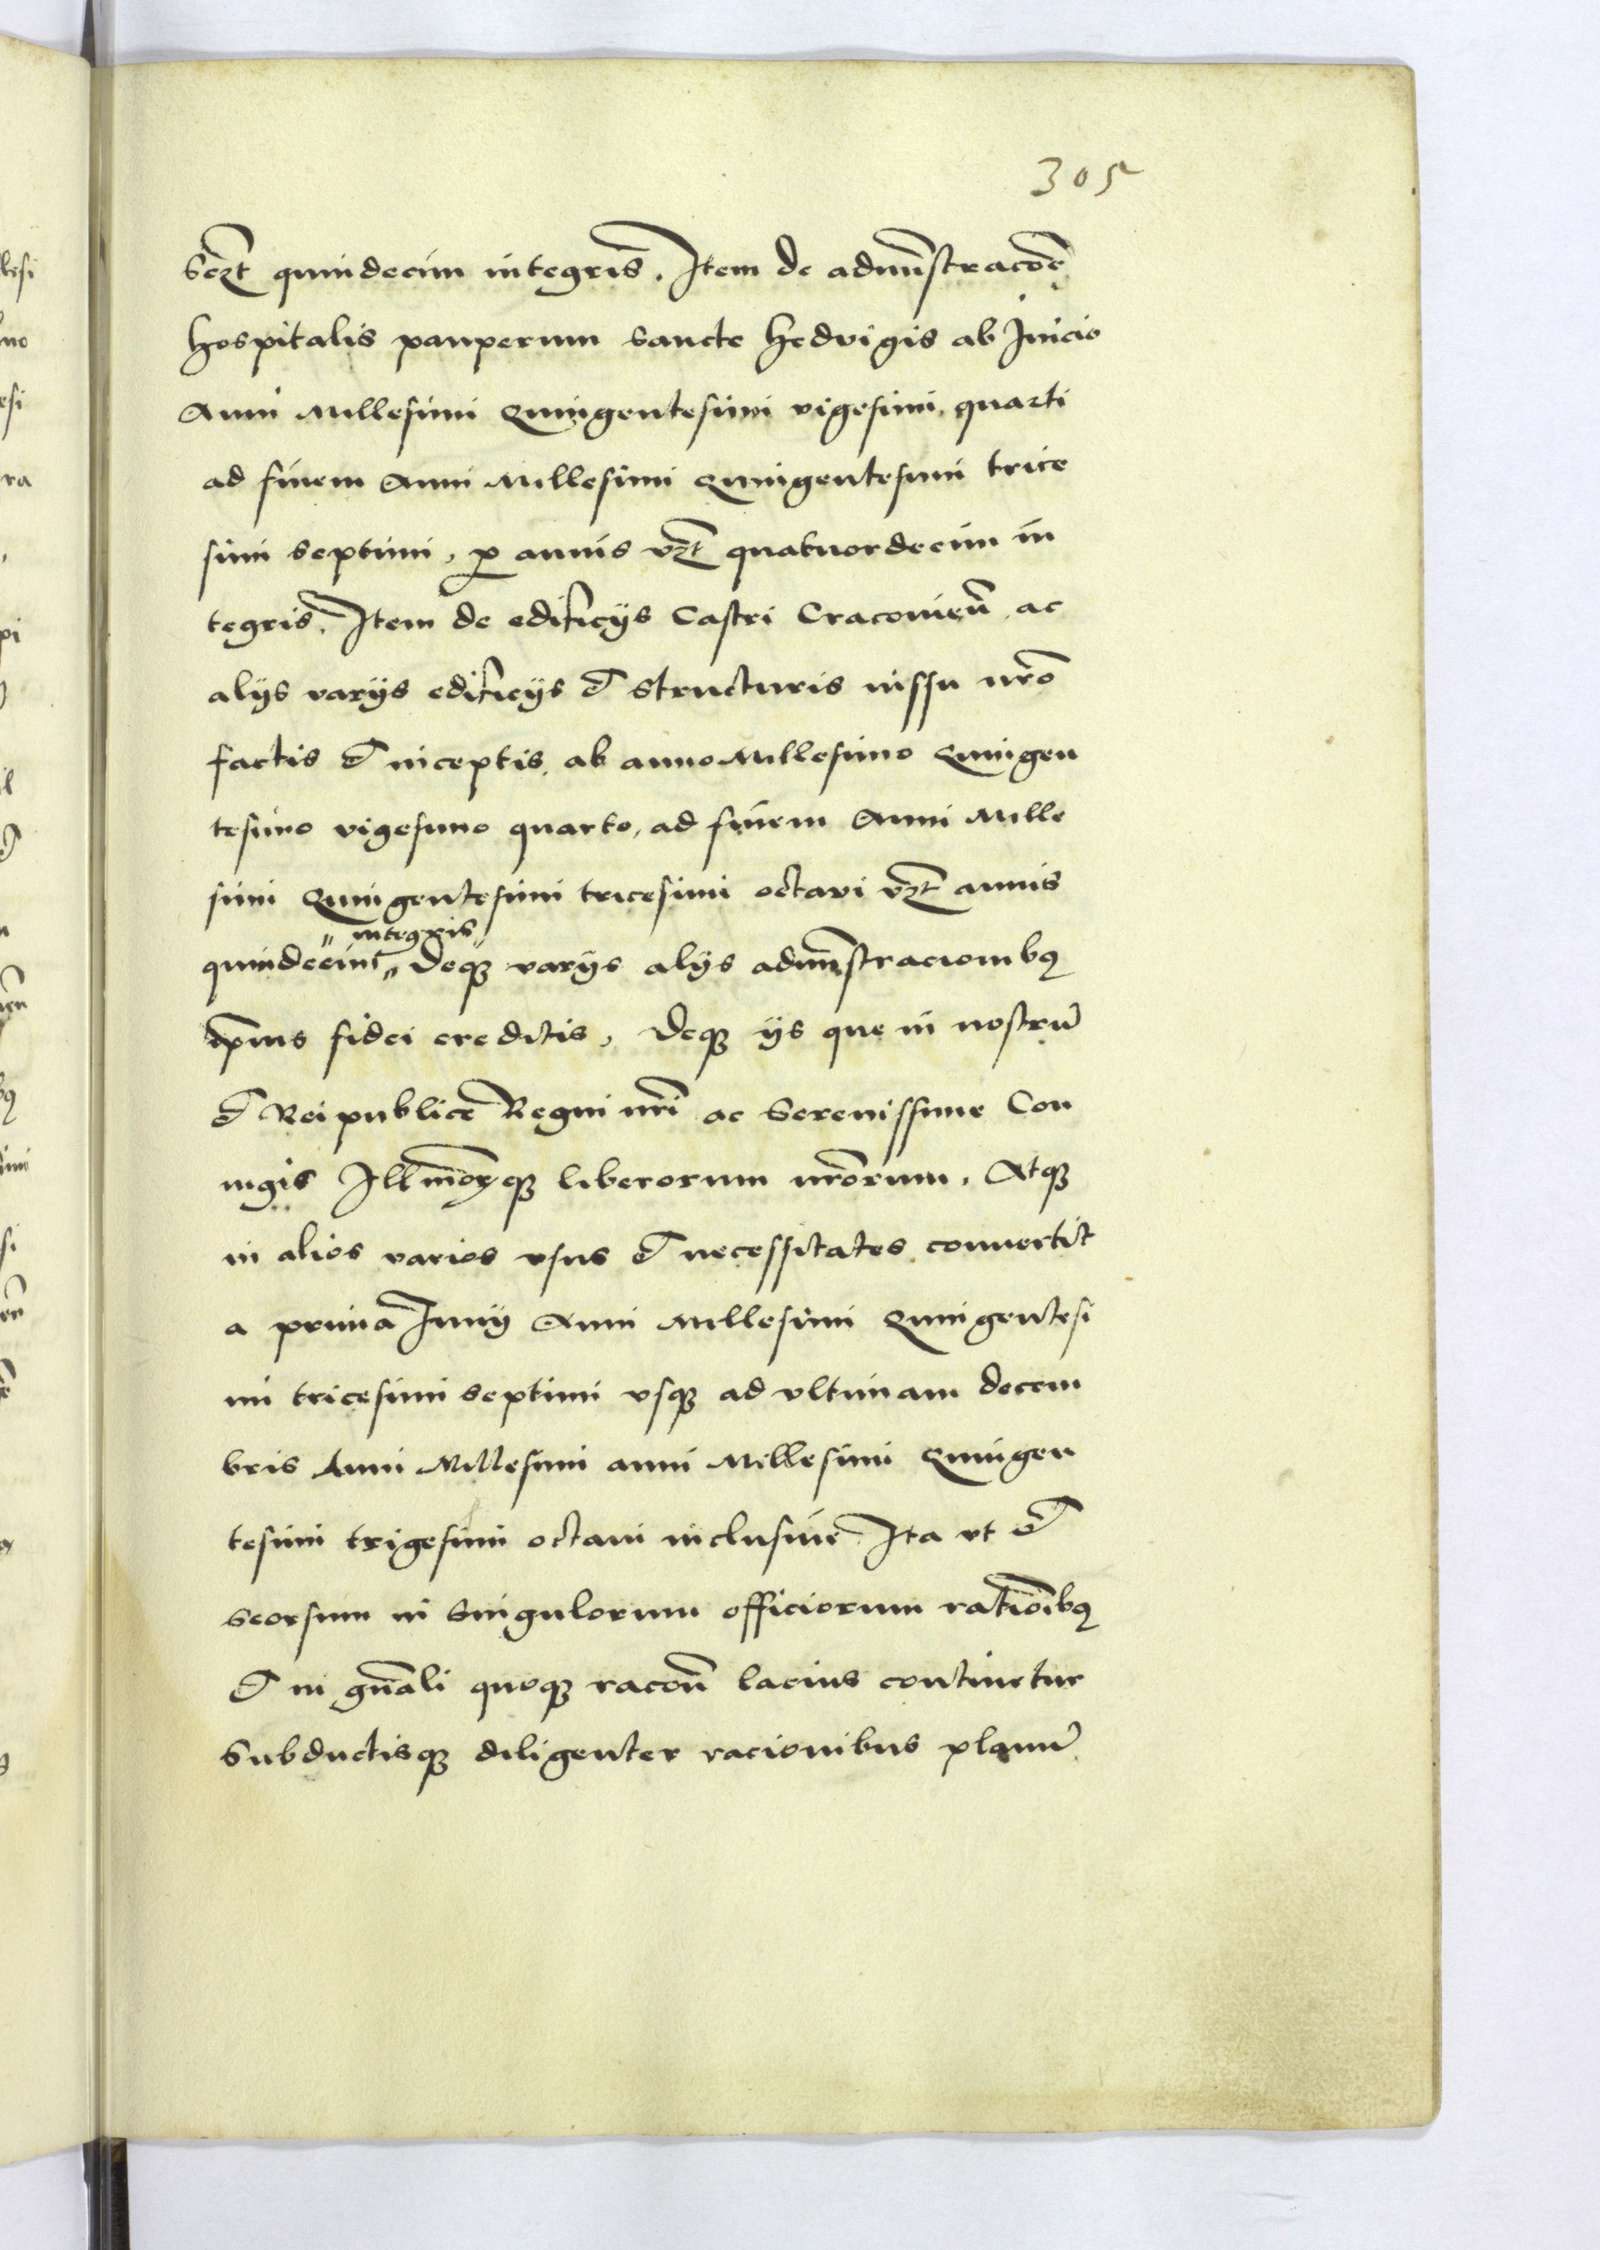 305
Sczt quindecim integris. Item de admnstracoe
hospitalis pauperum sancte Hedvigis ab Inicio
Anni Millesimi Quingentesimi vigesimi quarti
ad finem Anni Millesimi Quingentesimi trice
simi septimi, p annis vzt quatuordecim in
tegris. Item de edificijs Castri Cracovien̄ ac
alijs varijs edificijs et structuris iussu nr̄o
factis et inceptis ab anno Millesimo Quingen
tesimo vigesimo quarto, ad finem Anni Mille
simi Quingentesimi tricesimi octavi vzt annis
integris
quindecim Deqꝫ varijs alijs admn̄stracionibꝯ
ip̄ius fidei creditis, Deqꝫ ijs que in nostrū
et Reipublice Regni nr̄i ac Serenissime Con
iugis Illm̄orꝫqꝫ liberorum nr̄orum, Atqꝫ
in alios varios vsus et necessitates convertit
a prima Junij Anni Millesimi Quingentesi
mi tricesimi septimi vsqꝫ ad vltimam decem
bris Anni Millesimi anni Millesimi Quingen
tesimi trigesimi octavi inclusive Ita vt et
seorsum in singulorum officiorum rationibꝯ
et in gn̄ali quoqꝫ racon̄ lacius continetur
Subductisqꝫ diligenter racionibus planū